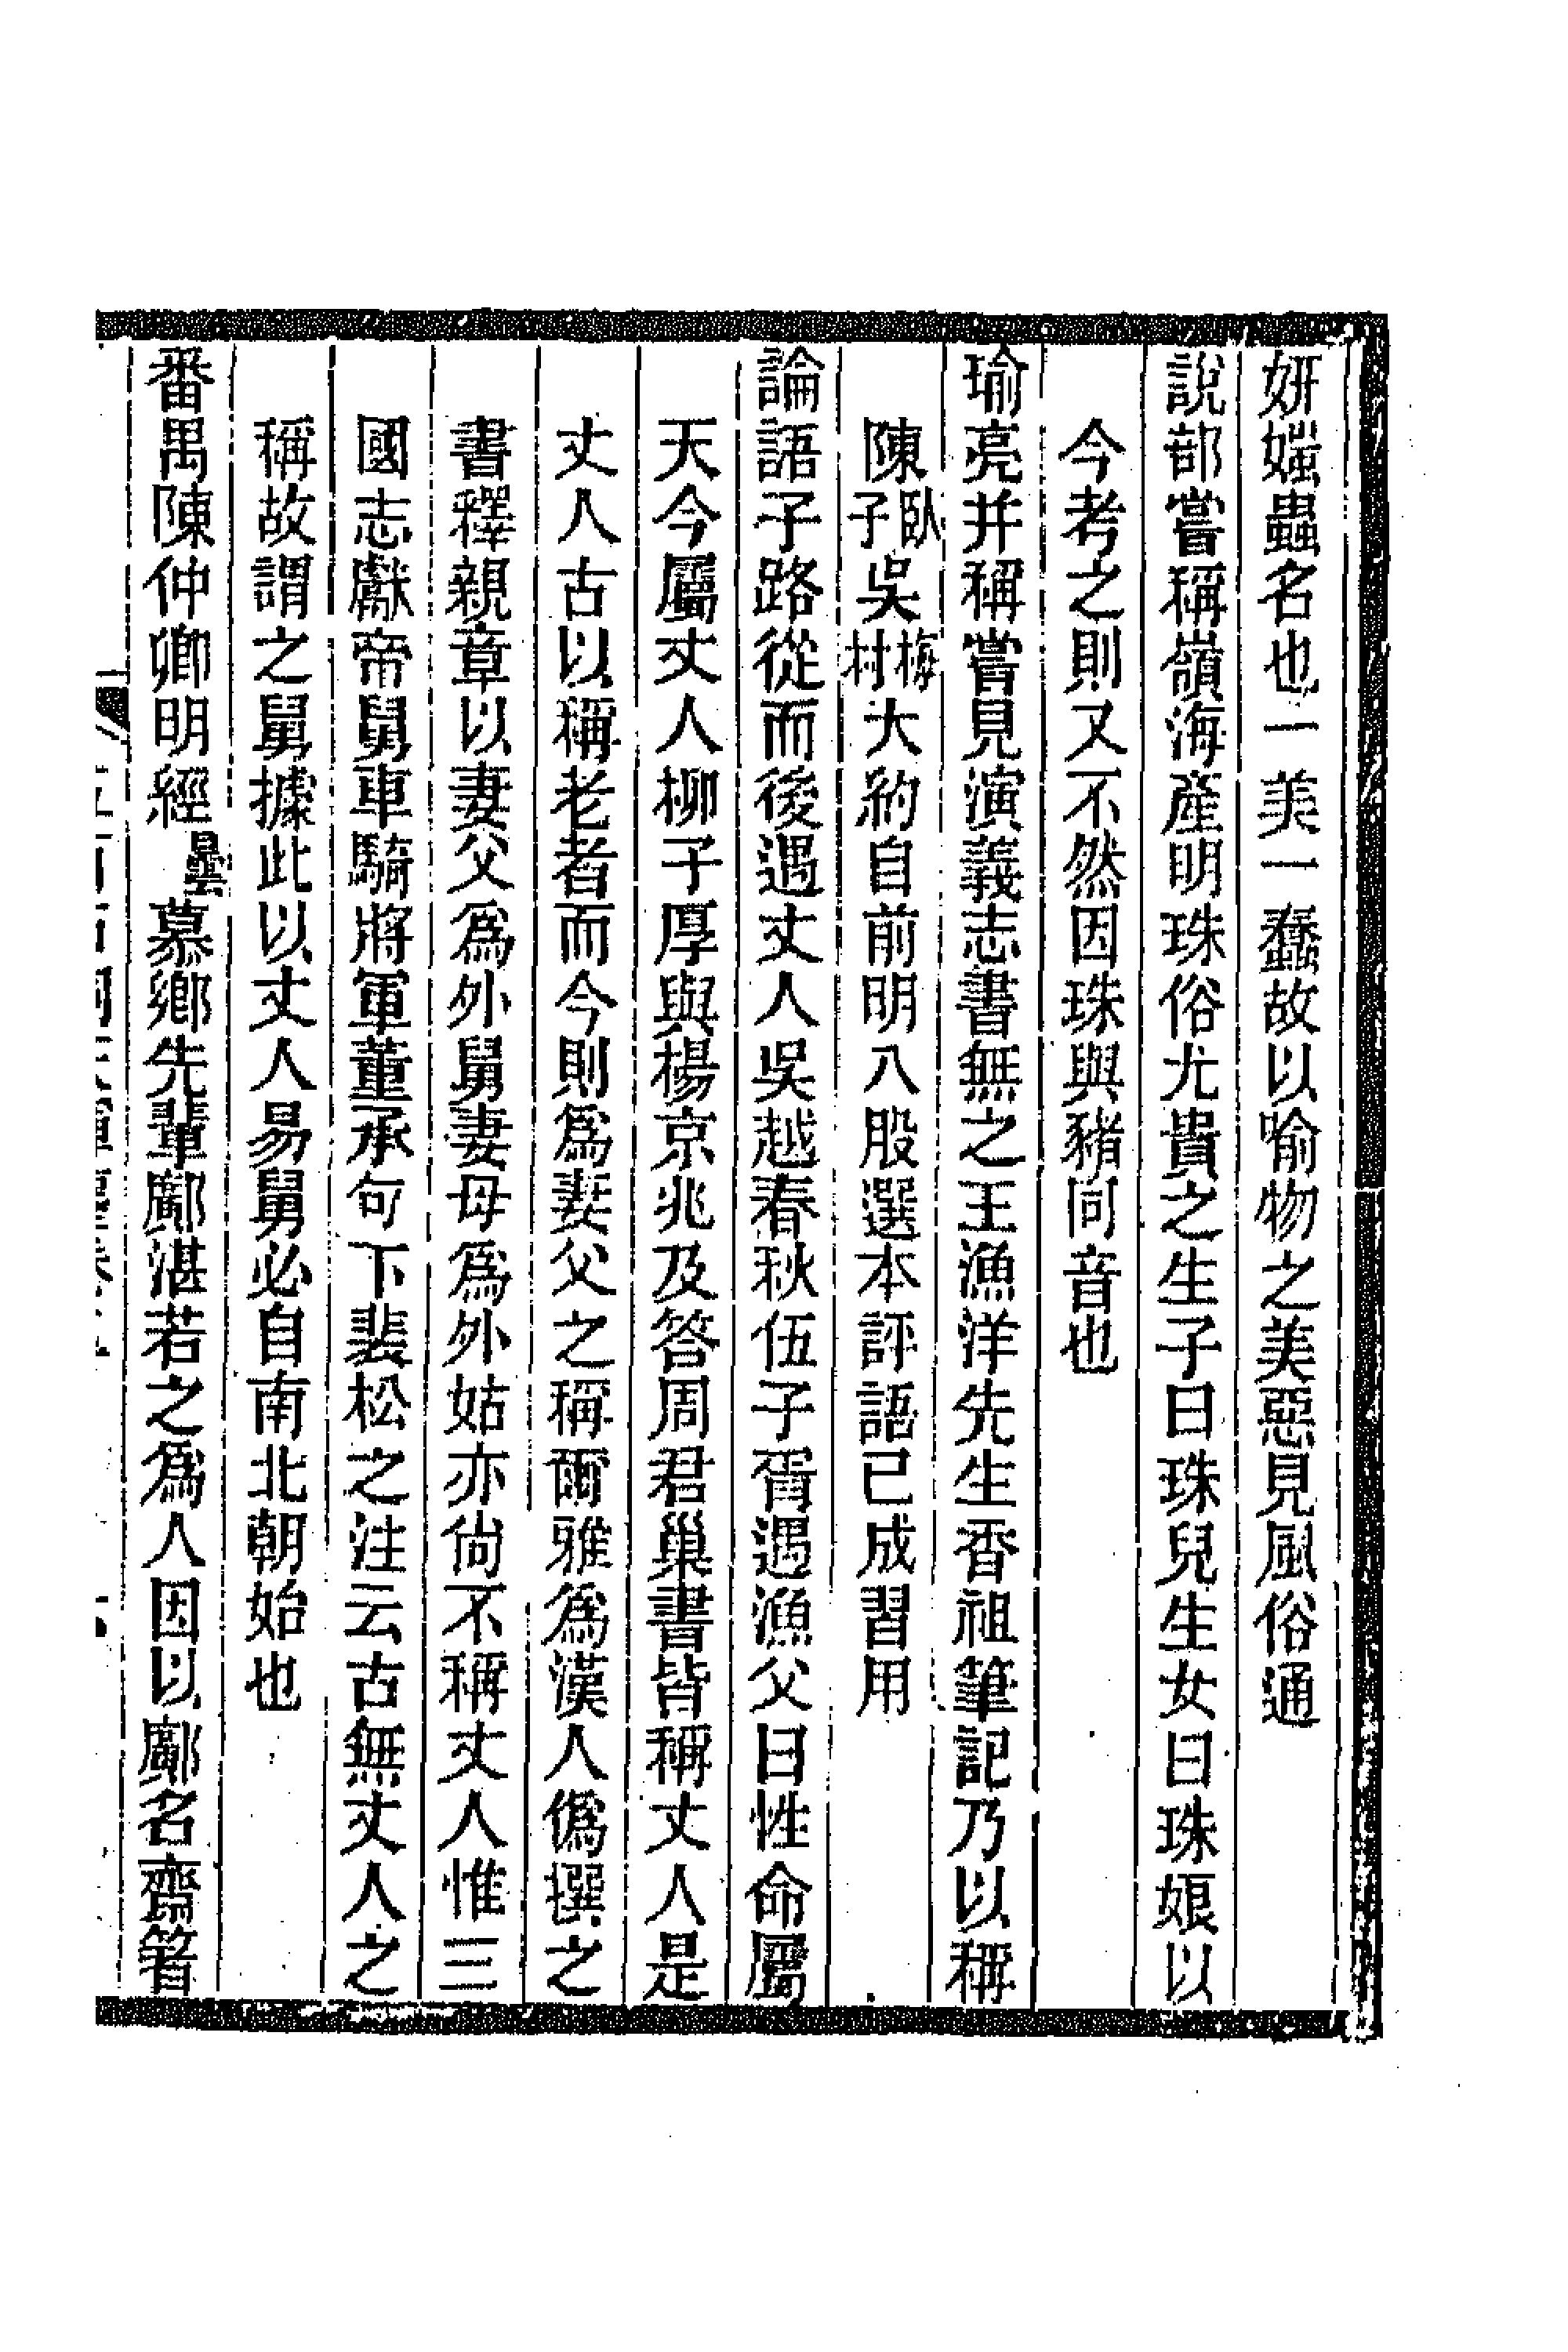 妍媸蟲名也一美一蠢故以喻物之美惡見風俗通
說部嘗稱嶺海產明珠俗尤貴之生子曰珠兒生女曰珠娘以
今考之則又不然因珠與豬同音也
瑜亮并稱嘗見演義志書無之王漁洋先生香祖筆記乃以稱
陳臥子吳梅村大約自前明八股選本評語已成習用
論語子路從而後遇丈人吳越春秋伍子胥遇漁父曰性命屬
天今屬丈人柳子厚與楊京兆及答周君巢書皆稱丈人是
丈人古以稱老者而今則爲妻父之稱爾雅爲漢人僞撰之
書釋親章以妻父爲外舅妻母爲外姑亦尙不稱丈人惟三
國志獻帝舅車騎將軍董承句下裴松之注云古無丈人之
稱故謂之舅據此以丈人易舅必自南北朝始也
番禺陳仲卿明經曇慕鄉先輩鄺湛若之爲人因以鄺名齋箸